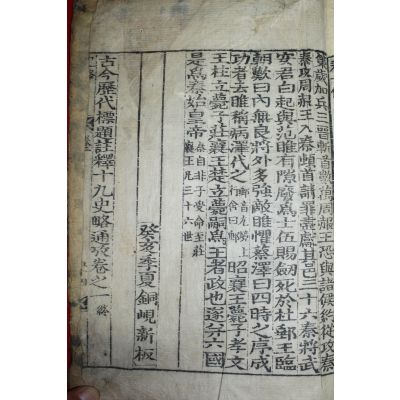 歲加兵三晉斬首數萬周赧王恐與諸侯約從攻秦
秦攻周赧王入秦頓首請罪盡獻其邑三十六秦將武
安君白起與范睢有隙廢爲士伍賜劒死於杜郵王臨
朝歎曰內無良將外多強敵睢懼蔡澤曰四時之序成
功者去睢稱病澤代之 行舍曰郵 昭襄王薨子孝文
王柱立薨子莊襄王楚立薨嗣爲王者政也遂幷六國
是爲秦始皇帝 秦自非子受命至莊襄王凡三十六世
癸亥季夏銅峴新板
古今歷代標題註釋十九史略通攷卷之一 終